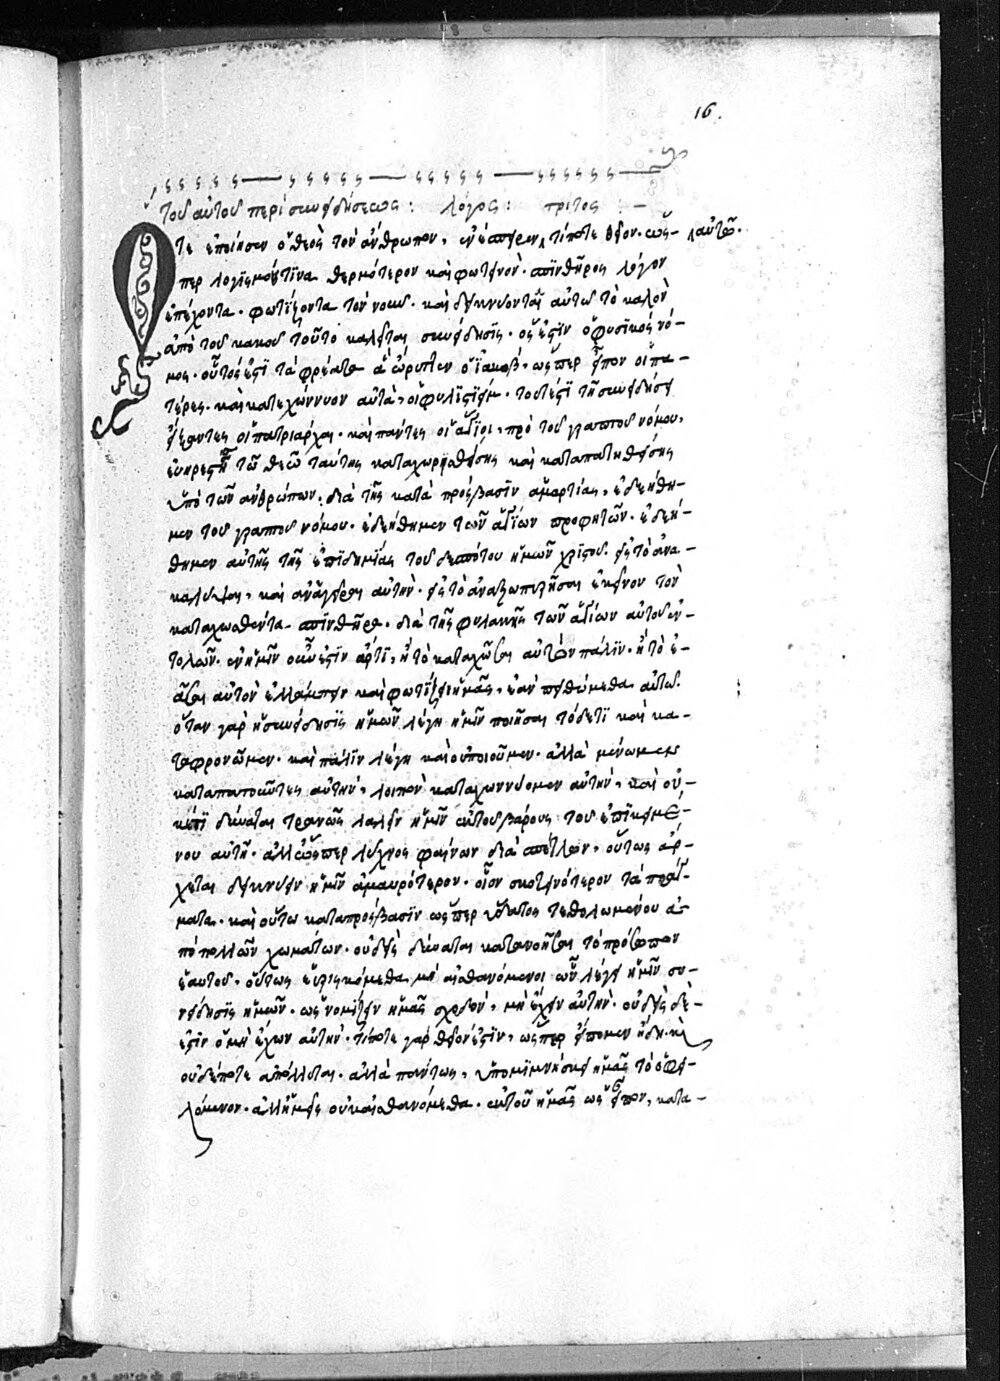 16.
τοῦ αὐτοῦ περὶ συνειδήσεως: λόγος: τρίτος :–
Ὅτε ἐποίησεν ὁ θεὸς τὸν ἄνθρωπον, ἐνέσπειρεν τίποτε θεῖον. ὥσ– αὐτῶ.
περ λογϊσμόν τϊνα θερμότερον καὶ φωτεινὸν. σπϊνθῆρος λόγον
ἐπέχοντα. φωτΐζοντα τὸν νοῦν. καὶ δεικνύοντα αὐτῶ τὸ καλὸν
ἀπὸ τοῦ κακοῦ τοῦτο καλεῖται συνείδησϊς. ὅς ἐστϊν ὁ φυσϊκὸς νό–
μος. οὗτός ἐστϊ τὰ φρέατα ἃ ὤρυττεν ὁ ϊακὼβ, ὥσπερ εἶπον οἱ πα–
τέρες. καὶ κατεχώννυον αὐτὰ, οἱ φυλϊστϊείμ. τουτέστϊ τῆ συνειδήσει
εἴξαντες οἱ πατριάρχαι. καὶ πάντες οἱ ἅγϊοι, πρὸ τοῦ γραπτοῦ νόμου,
εὐηρέστησαν τῶ θεῶ ταύτης καταχωρϊσθείσης καὶ καταπατηθείσης
ὑπὸ τῶν ἀνθρώπων. διὰ τῆς κατὰ πρόσβασϊν ἁμαρτίας, ἐδεήθη–
μεν τοῦ γραπτοῦ νόμου. ἐδεήθημεν τῶν ἁγΐων προφητῶν. ἐδεή–
θημεν αὐτῆς τῆς ἐπϊδημΐας τοῦ δεσπότου ἡμῶν χριστοῦ. εἰς τὸ ἀνα–
καλύψαι, καὶ ἀνάγειραι αὐτὴν. εἰς τὸ ἀναζωπυρῆσαι ἐκεῖνον τὸν
καταχωσθέντα σπϊνθῆρα. διὰ τῆς φυλακῆς τῶν ἁγΐων αὐτοῦ ἐν–
τολῶν. ἐν ἡμῖν οὖν ἐστϊν ἄρτϊ, ἢ τὸ καταχῶσαι αὐτὸν πάλϊν. ἢ τὸ ἐ–
ᾶσαι αὐτὸν ἐλλάμπειν καὶ φωτΐζειν ἡμᾶς, ἐὰν πειθώμεθα αὐτῶ.
ὅταν γὰρ ἡ συνείδησϊς ἡμῶν λέγη ἡμῖν ποιῆσαι τόδε τϊ καὶ κα–
ταφρονῶμεν. καὶ πάλϊν λέγη καὶ οὐ ποιοῦμεν. ἀλλὰ μένωμεν
καταπατοῦντες αὐτὴν, λοιπὸν καταχωννύομεν αὐτὴν, καὶ οὐ–
κέτϊ δύναται τρανῶς λαλεῖν ἡμῖν ἐκ τοῦ βάρους τοῦ ἐπϊκειμέ–
νου αὐτῆ. ἀλλ' ὥσπερ λύχνος φαίνων διὰ σπέτλων, οὕτως ἄρ–
χεται δεικνύειν ἡμῖν ἀμαυρότερον. οἷον σκοτεινότερον τὰ πράγ–
ματα. καὶ οὕτω κατὰ πρόσβασϊν ὥσπερ ὕδατος τεθολωμένου ἀ–
πὸ πολλῶν χωμάτων. οὐδεὶς δύναται κατανοῆσαι τὸ πρόσωπον
ἑαυτοῦ. οὕτως εὑρισκόμεθα μὴ αἰσθανόμενοι ὧν λέγει ἡμῖν συ–
νείδησϊς ἡμῶν. ὡς νομίζειν ἡμᾶς σχεδὸν, μὴ ἔχειν αὐτὴν. οὐδεὶς δὲ–
ἐστϊν ὁ μὴ ἔχων αὐτὴν. τίποτε γὰρ θεῖόν ἐστϊν, ὥσπερ εἴπομεν ἤδη. καὶ
οὐδέποτε ἀπόλλυται. ἀλλὰ πάντως, ὑπομϊμνήσκει ἡμᾶς τὸ ὀφει–
λόμενον. ἀλλ' ἡμεῖς οὐκ αἰσθανόμεθα. ἐκ τοῦ ἡμᾶς ὡς εἶπον, κατα–